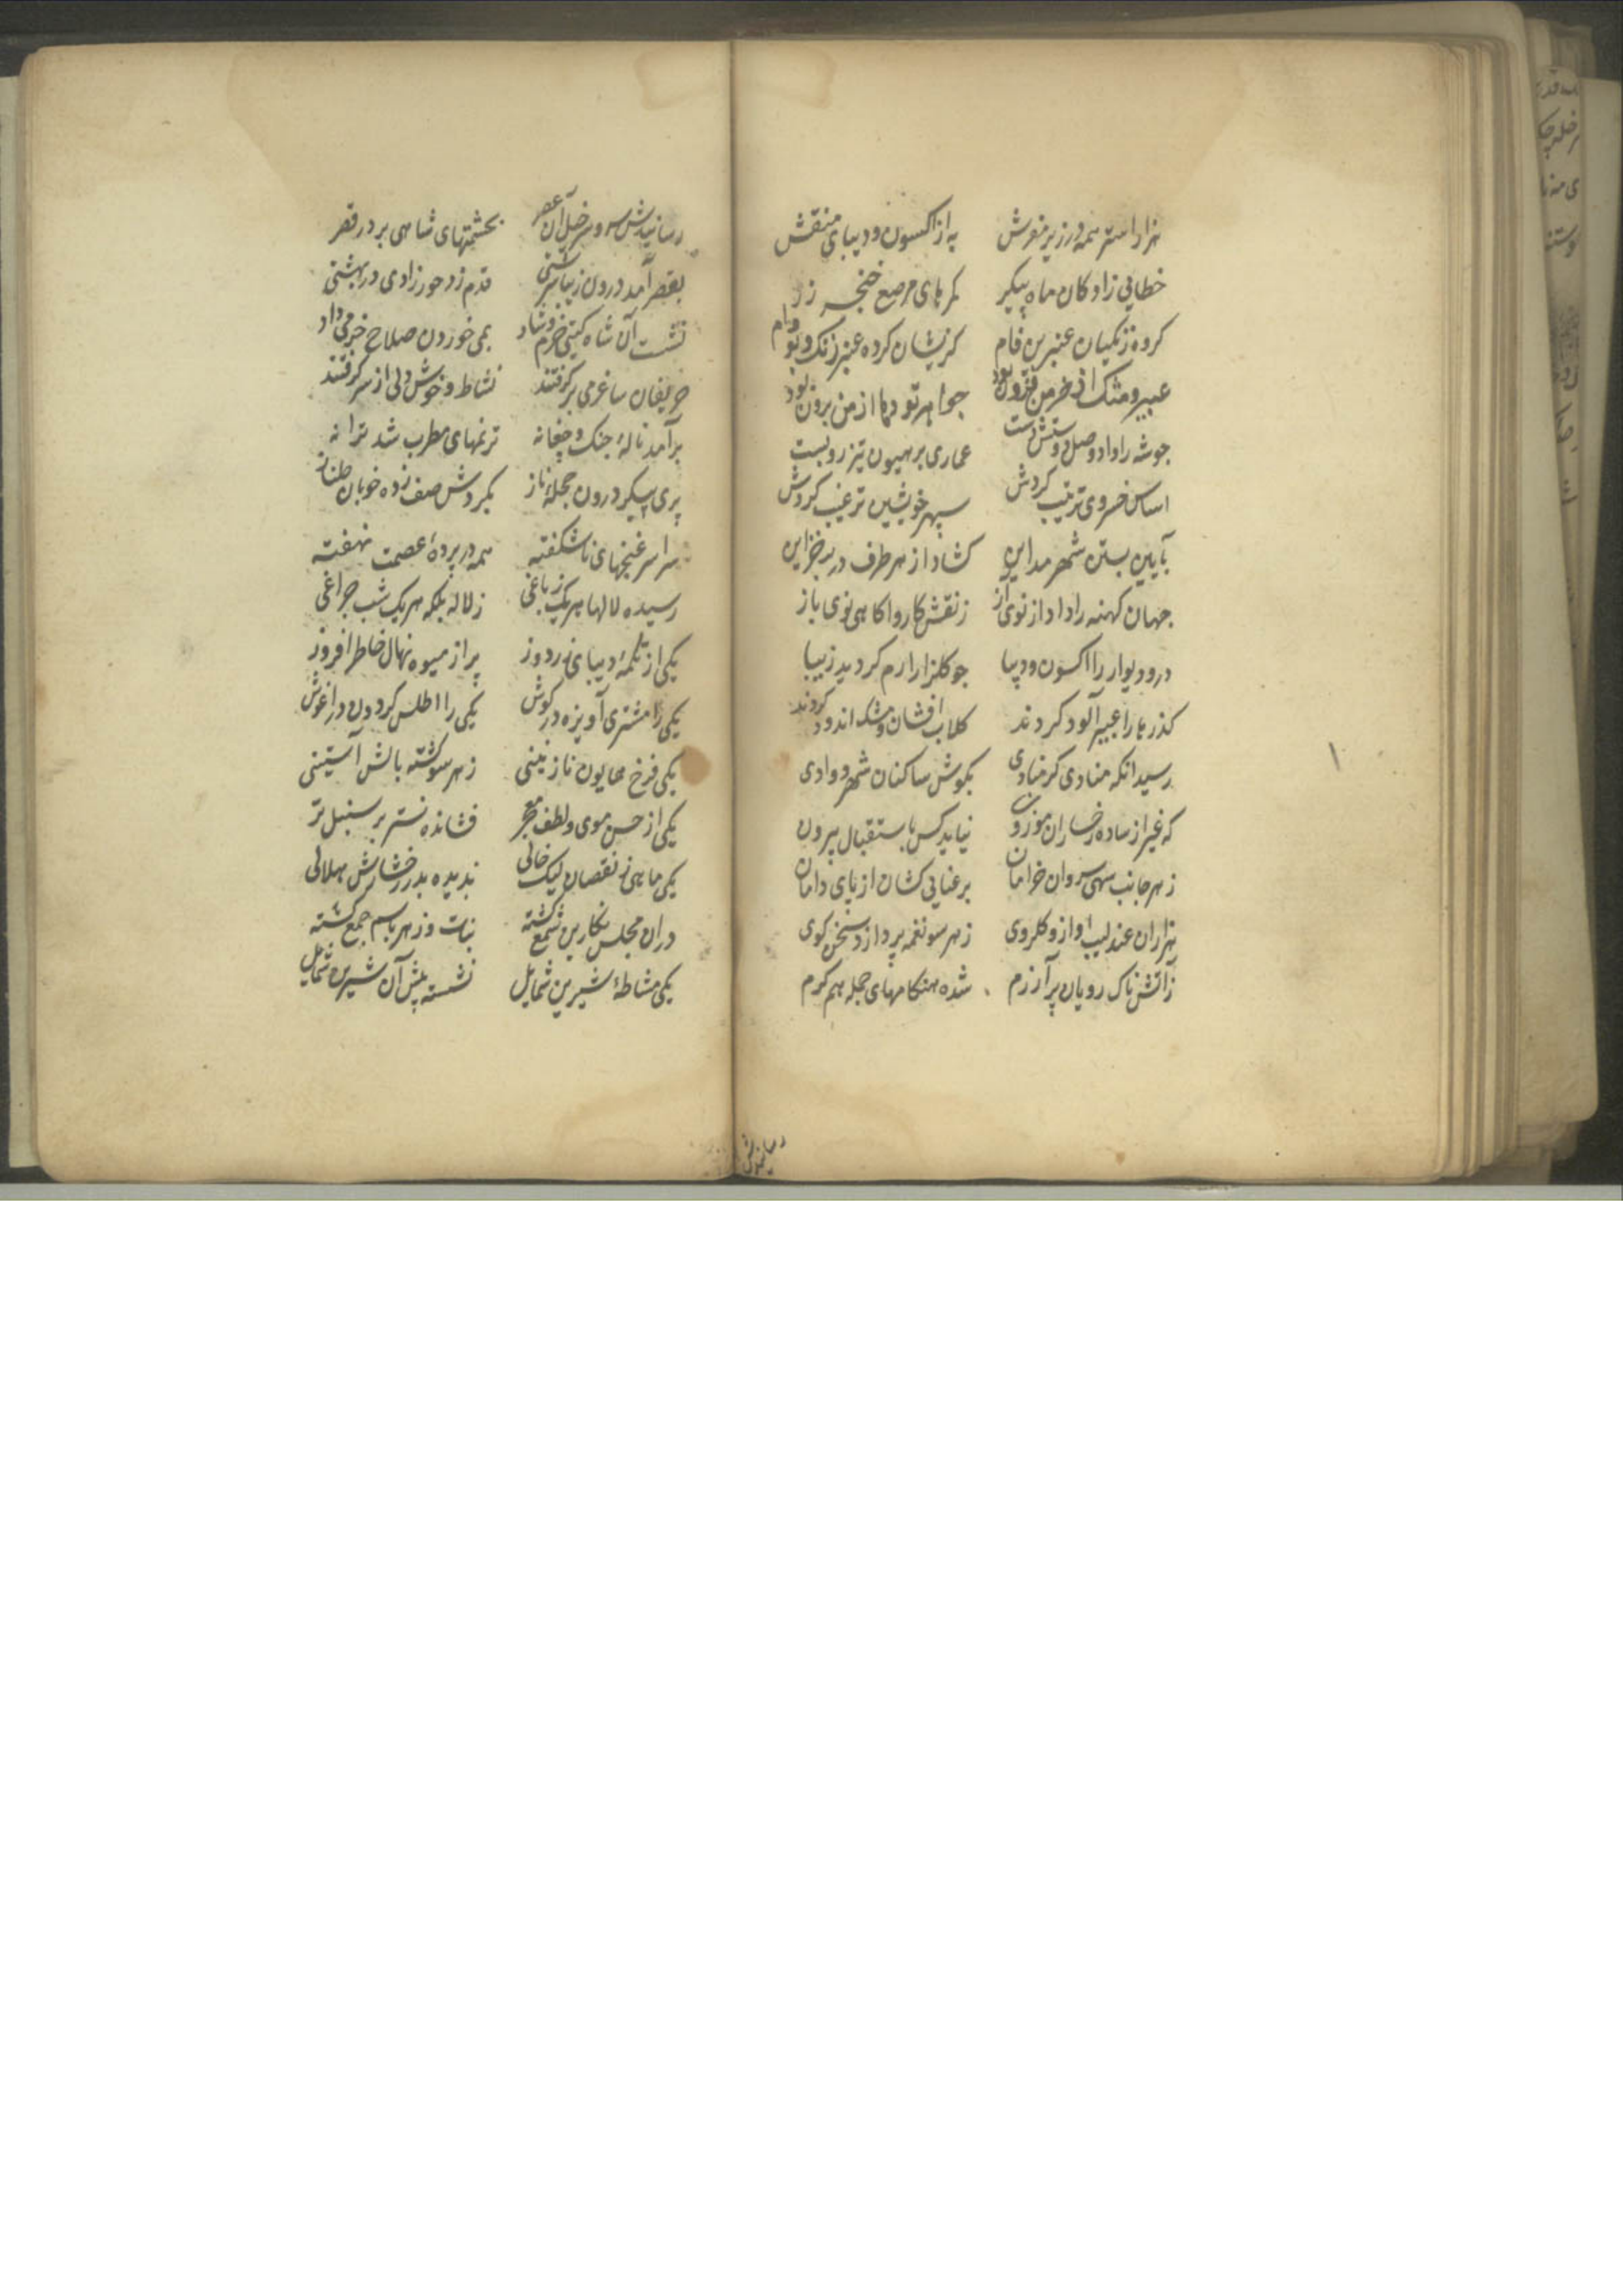 هزار استر همه در زیر مفرش پر از اکسون و دیبای منقش
خطایی زادکان ماه پیکر کمرهای مرصع خنجر زر
کروه زنکیان عنبرین فام کزیشان کرده عنبر رنک و بو وام
عبیر و مشک از خرمن فزون بود جواهر تودها از من برون بود
چو شه را داد وصل دوست دست عماری بر هیون تیز رو بست
اساس خسروی ترتیب کردش سپهر خویشین ترغیب کردش
بآیین بستن شهر مداین کشاد از هر طرف در بر خزاین
جهان کهنه را داد از نوی از ز نقش کار و اکاهی نوی باز
در و دیوار را اکسون و دیبا چو کلزار ارم کردید زیبا
کذرها را عبیر آلود کردند کلاب افشان و مشک اندود کردند
رسید انکه منادی کر منادی بکوش ساکنان شهر و وادی
که غیر از ساده رخساران موزون نیاید کس باستقبال بیرون
ز هر جانب سهی سروان خرامان برعنایی کشان از پای دامان
هزاران عندلیب اواز و کلروی ز هر سو نغمه پرداز و سخن کوی
ز آتش ناک رویان پر آزرم شده هنکامهای جمله هم کرم
رسانیدش
رسانیدش سر و سرخیل آن عصر بحشمتهای شاهی بر در قصر
بقصر آمد درون زیبا سرشتی قدم زد حور زادی در بهشتی
نشست آن شاه کیتی خرم و شاد بمی خوردن صلاح خرمی داد
حریفان ساغر می بر کرفتند نشاط و خوش دلی از سر کرفتند
برآمد نالهٔ چنک و چغانه ترنمهای مطرب شد ترانه
پری پیکر درون حجلهٔ ناز بکردش صف زده خوبان طناز
سراسر غنچهای ناشکفته همه در پردهٔ عصمت نهفته
رسیده لالها هر یک ز باغی ز لاله بلکه هر یک شب چراغی
یکی از تکمهٔ دیبای زردوز پر از میوه نهال خاطر افروز
یکی را مشتری آویزه در کوش یکی را اطلس کردون در اغوش
یکی فرخ همایون نازنینی ز هر سو کشته بالش آستینی
یکی از حسن موی و لطف معجر فشانده نستر بر سنبل تر
یکی ماهی ز نقصان لیک خالی ندیده بدر رخشارش هلالی
دران مجلس نکارین شمع کشته نبات و زهر باهم جمع کشته
یکی مشاطهٔ شیرین شمایل نشسته پیش آن شیرین شمایل